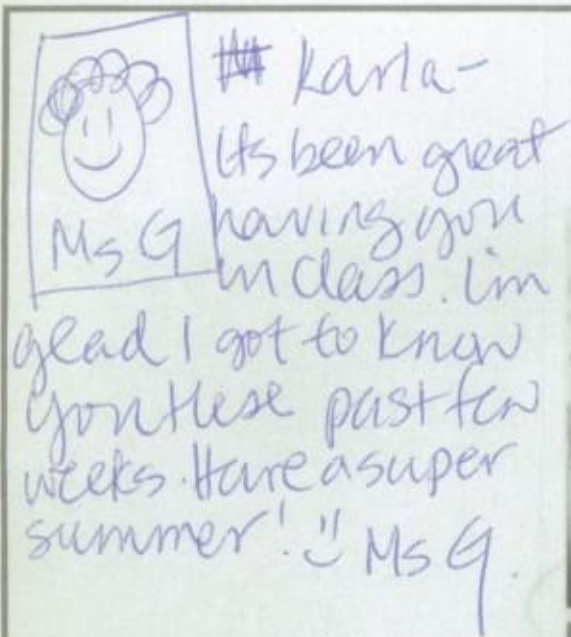 Ms G
Karla-
Its been great
having you
in class. I'm
glad I got to know
you these past few
weeks. Have a super
summer! :) Ms G.